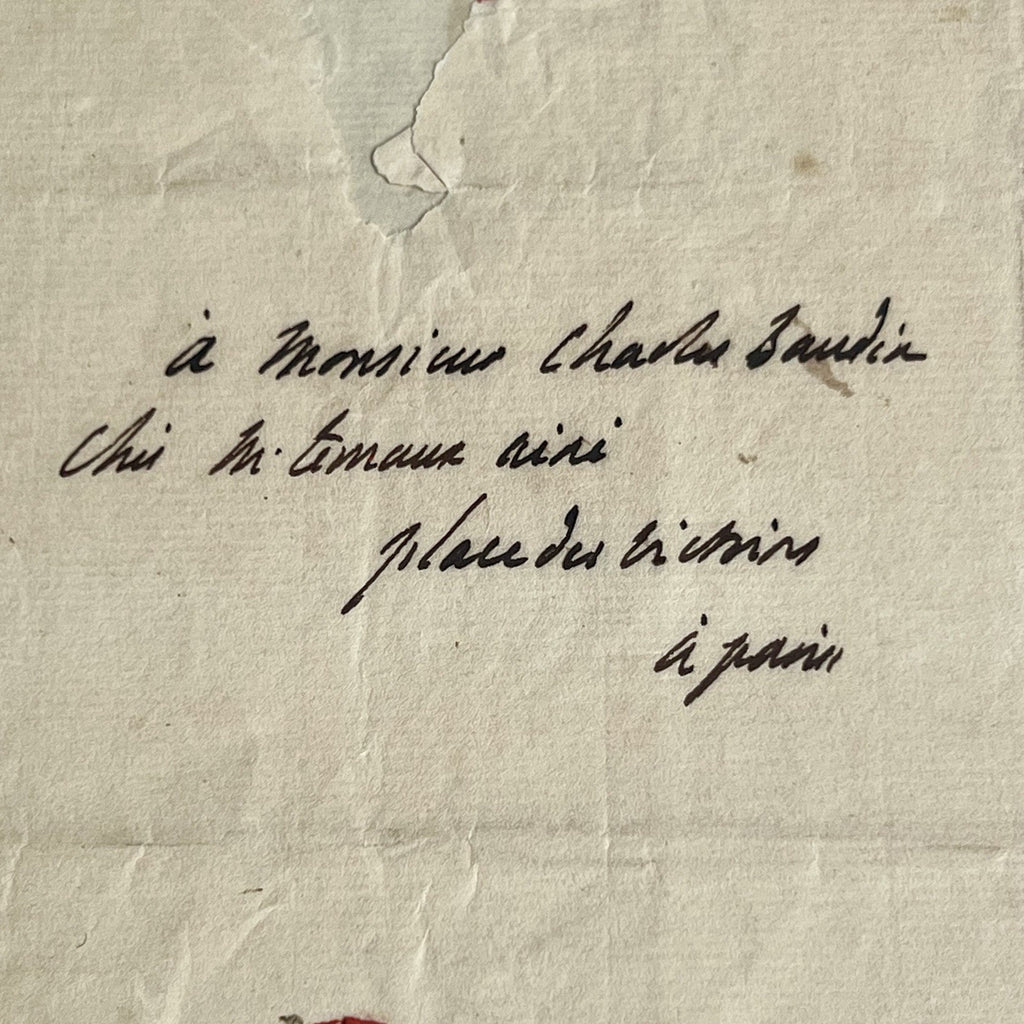 à Monsieur Charles Baudin
Chés M. ternaux ainé
place des victoires
à paris